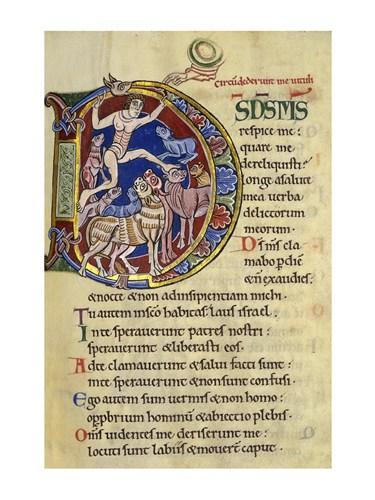 Circu̅dederunt me uituli
DS DS MS
respice me:
quare me
dereliquisti:
longe a salute
mea uerba
delictorum
meorum.
Ds ms cla
mabo p̱ die̅
& n̅ exaudies:
& nocte & non ad insipientiam michi.
Tu autem in sc̅o habitas: laus israel.
In te sperauerunt patres nostri:
sperauerunt & liberasti eos.
Ad te clamauerunt & salui facti sunt:
in te sperauerunt & non sunt confusi.
Ego autem sum uermis & non homo:
opp̱brium hominu̅ & abiectio plebis.
Om̅s uidentes me deriserunt me:
locuti sunt labiis & mouerunt caput.